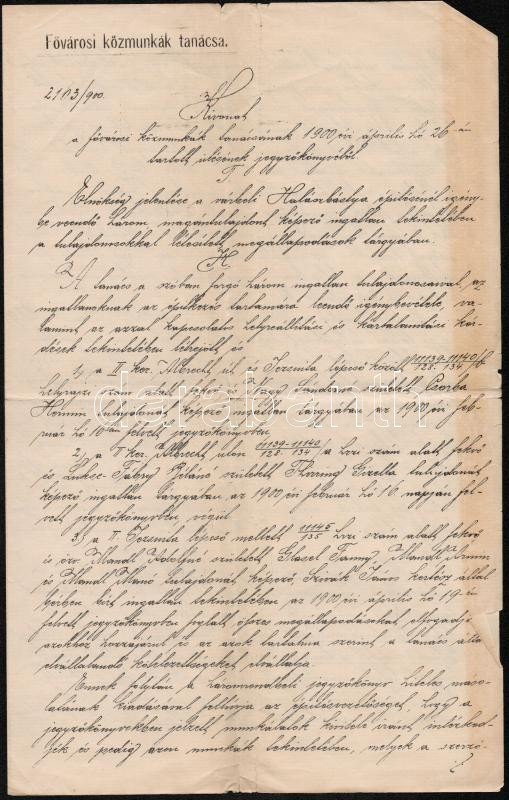 Fővárosi közmunkák tanácsa.
2103/900.
Kivonat
a fővárosi közmunkák tanácsának 1900 évi április hó 26-án
tartott ülésének jegyzőkönyvéből.
Elnökség jelentése a várbeli Halászbástya építésénél igény-
be veendő három magántulajdont képező ingatlan tekintetében
a tulajdonosokkal létesített megállapodások tárgyában.
H.
A tanács a szóban forgó három ingatlan tulajdonosaival, az
ingatlanoknak az építkezés tartamára leendő igénybevétele, va-
lamint az azzal kapcsolatos helyreállítási és kártalanítási kér-
dések tekintetében létrejött és
1) a II ker. Albrecht út és Jezsuita lépcső között 11139-11140/b
128. 134
helyrajzi szám alatt fekvő és Nagy Sándorné született Csorba
tulajdonát képező ingatlan tárgyában az 1900 évi feb-
ruár hó 16án felvett jegyzőkönyvben,
2) a II ker. Albrecht úton 11139-11140/a hrzi szám alatt fekvő
128. 134
és Lukse-Fabry Béláné született Thurns Gizella tulajdonát
képező ingatlan tárgyában az 1900 évi február hó 16. napján fel-
vett jegyzőkönyvben, végül
3) a II. Jezsuita lépcső mellett 11145 hrzi szám alatt fekvő
135
és özv. Mandl Adolfné született Glasel Fanny, Mandl Ármin
és Mandl Manó tulajdonát képező, Szivák János kertész által
bérben bírt ingatlan tekintetében az 1900 évi április hó 19-én
felvett jegyzőkönyvben foglalt összes megállapodásokat elfogadja
azokhoz hozzájárul és az azok tartalma szerint a tanács által
elvállalandó kötelezettségeket elvállalja.
Ennek folytán a háromrendbeli jegyzőkönyv hiteles máso-
latának kiadásával felhívja az építésvezetőséget, hogy a
jegyzőkönyvekben jelzett munkálatok iránt intézked-
jék és pedig azon munkák tekintetében, melyek a szerző-
darabanth